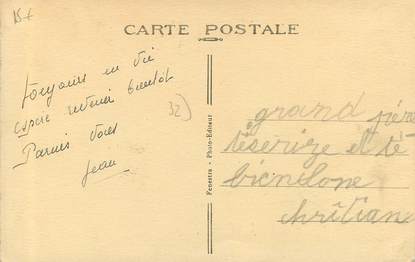 15 f
CARTE POSTALE
toujours en vie
espère revenir bientôt
Parmis Vous
Jean
32)
Fenestra - Photo-Editeur
grand père
et té
chritian